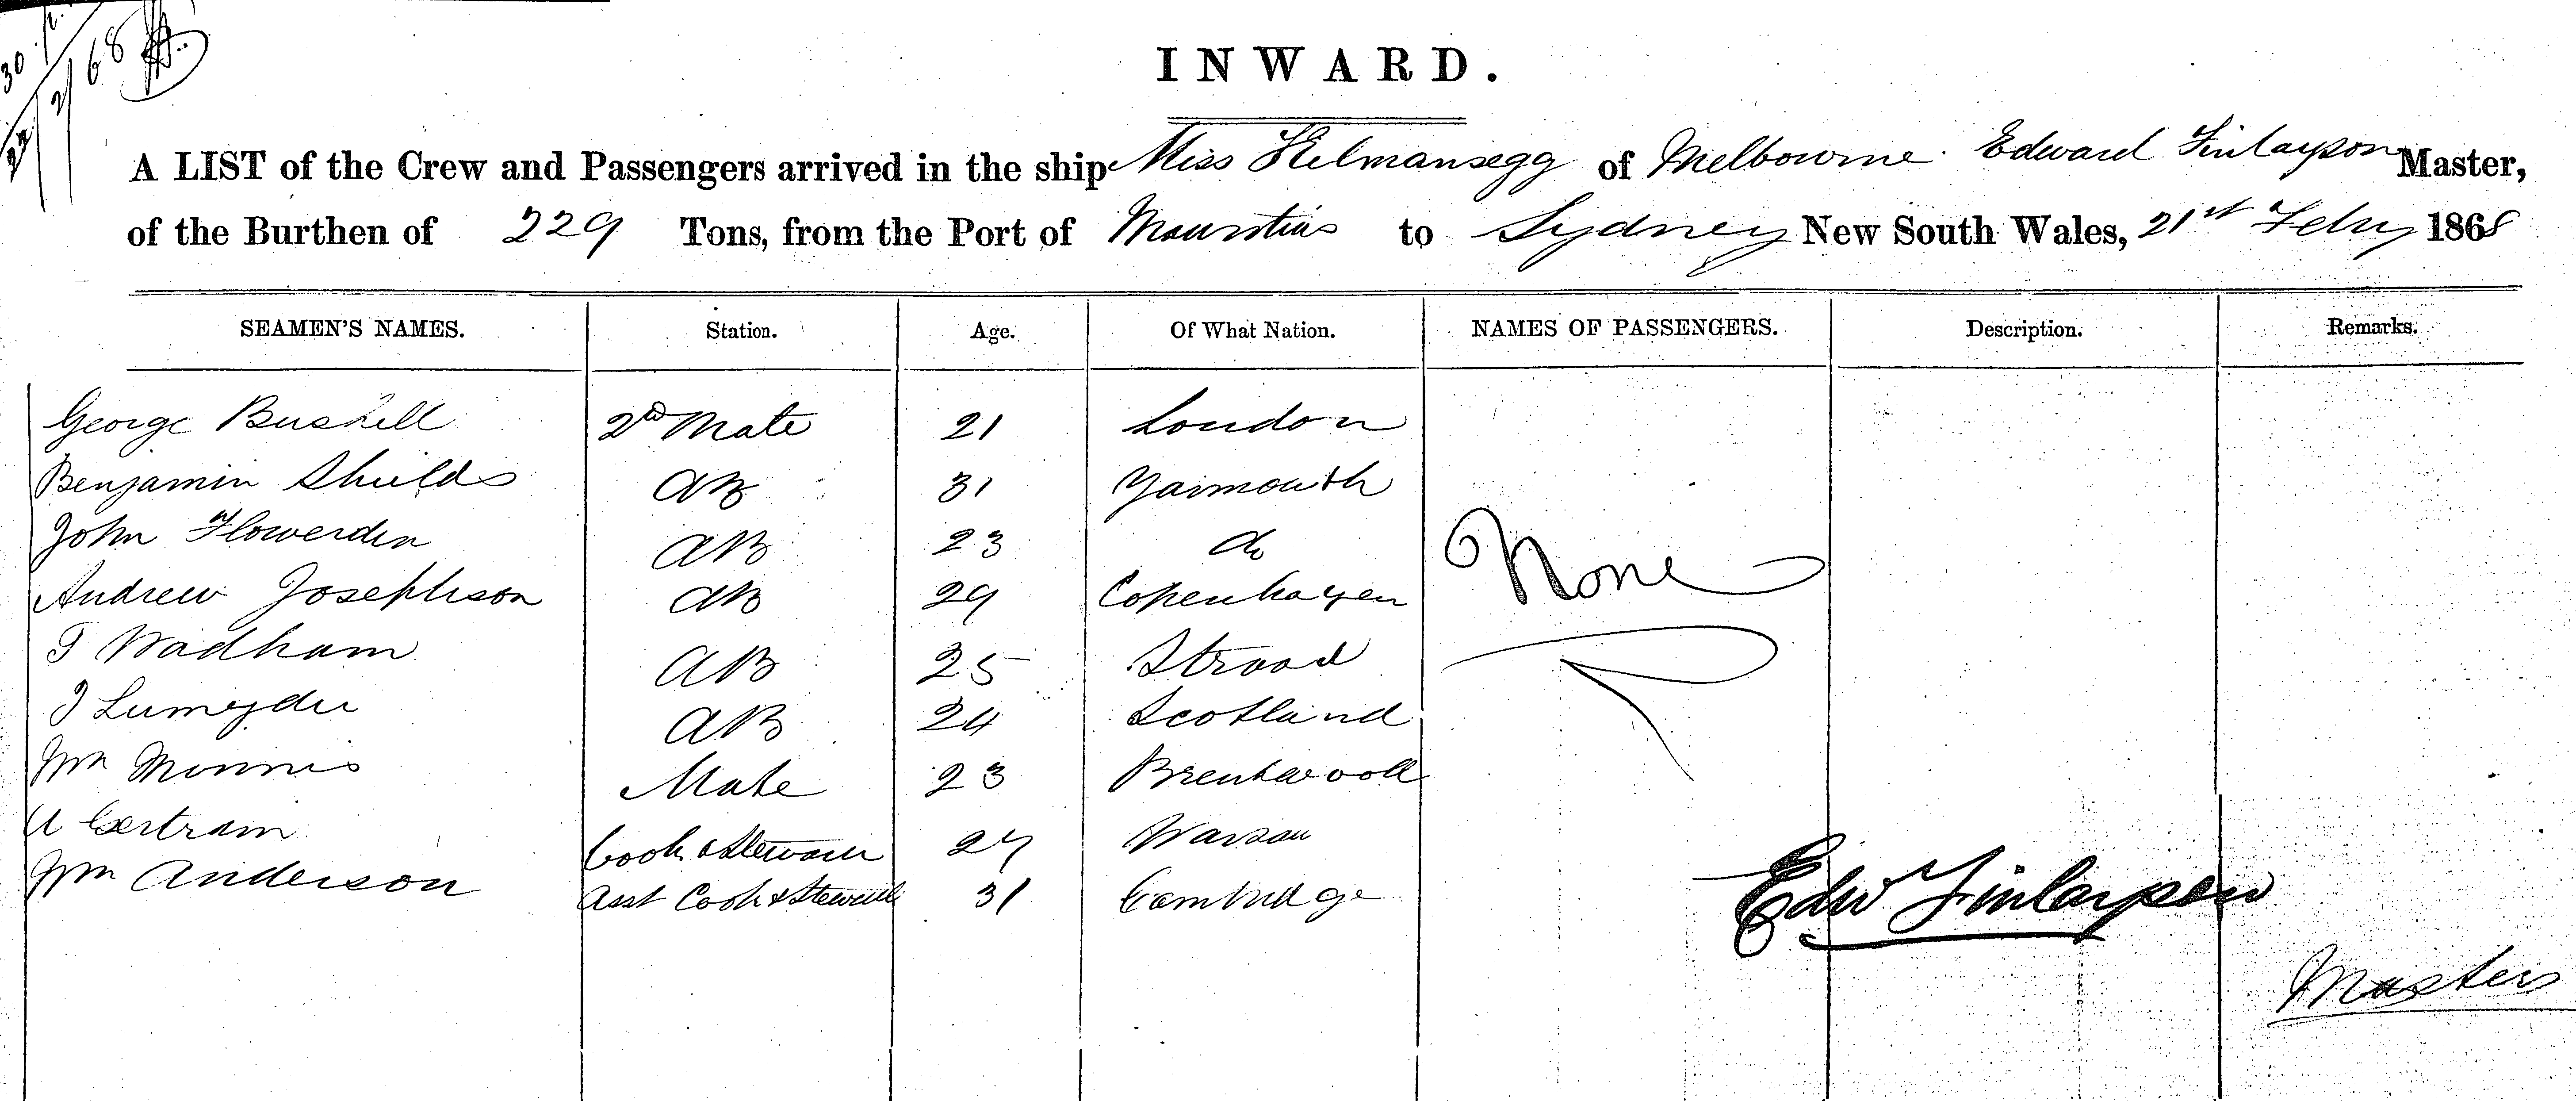 22/2/68
INWARD.
A LIST of the Crew and Passengers arrived in the ship Miss Kilmansegg of Melbourne Edward Finlayson Master,
of the Burthen of 229 Tons, from the Port of Mauritius to Sydney New South Wales, 21st Feby 1868
SEAMEN'S NAMES. Station. Age. Of What Nation. NAMES OF PASSENGERS. Description. Remarks.
George Bushell 2nd Mate 21 London
Benjamin Shields AB 31 Yarmouth
John Flowerden AB 23 do
None
Andrew Josephson AB 29 Copenhagen
T Wadham AB 25 Strood
J AB 24 Scotland
Wm Minnis Mate 23 Brentwood
Bertram Cook & Steward 27 Warsaw
Wm Anderson Asst Cook & Steward 31 Cambridge
Edw Finlayson
Master